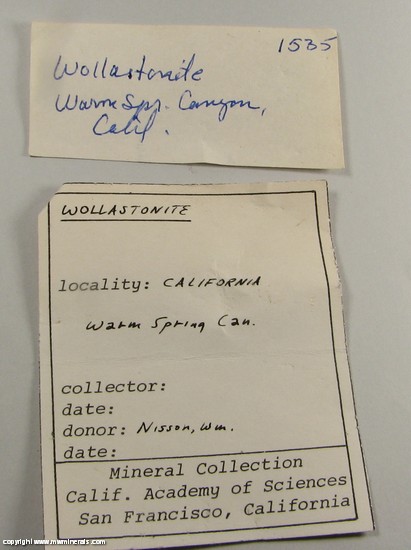 1535
Wollastonite
Warm Spr. Canyon,
Calif.
WOLLASTONITE
locality: CALIFORNIA
Warm Spring Can.
collector:
date:
donor: Nisson, Wm.
date:
Mineral Collection
Calif. Academy of Sciences
San Francisco, California
copyright www.mwminerals.com